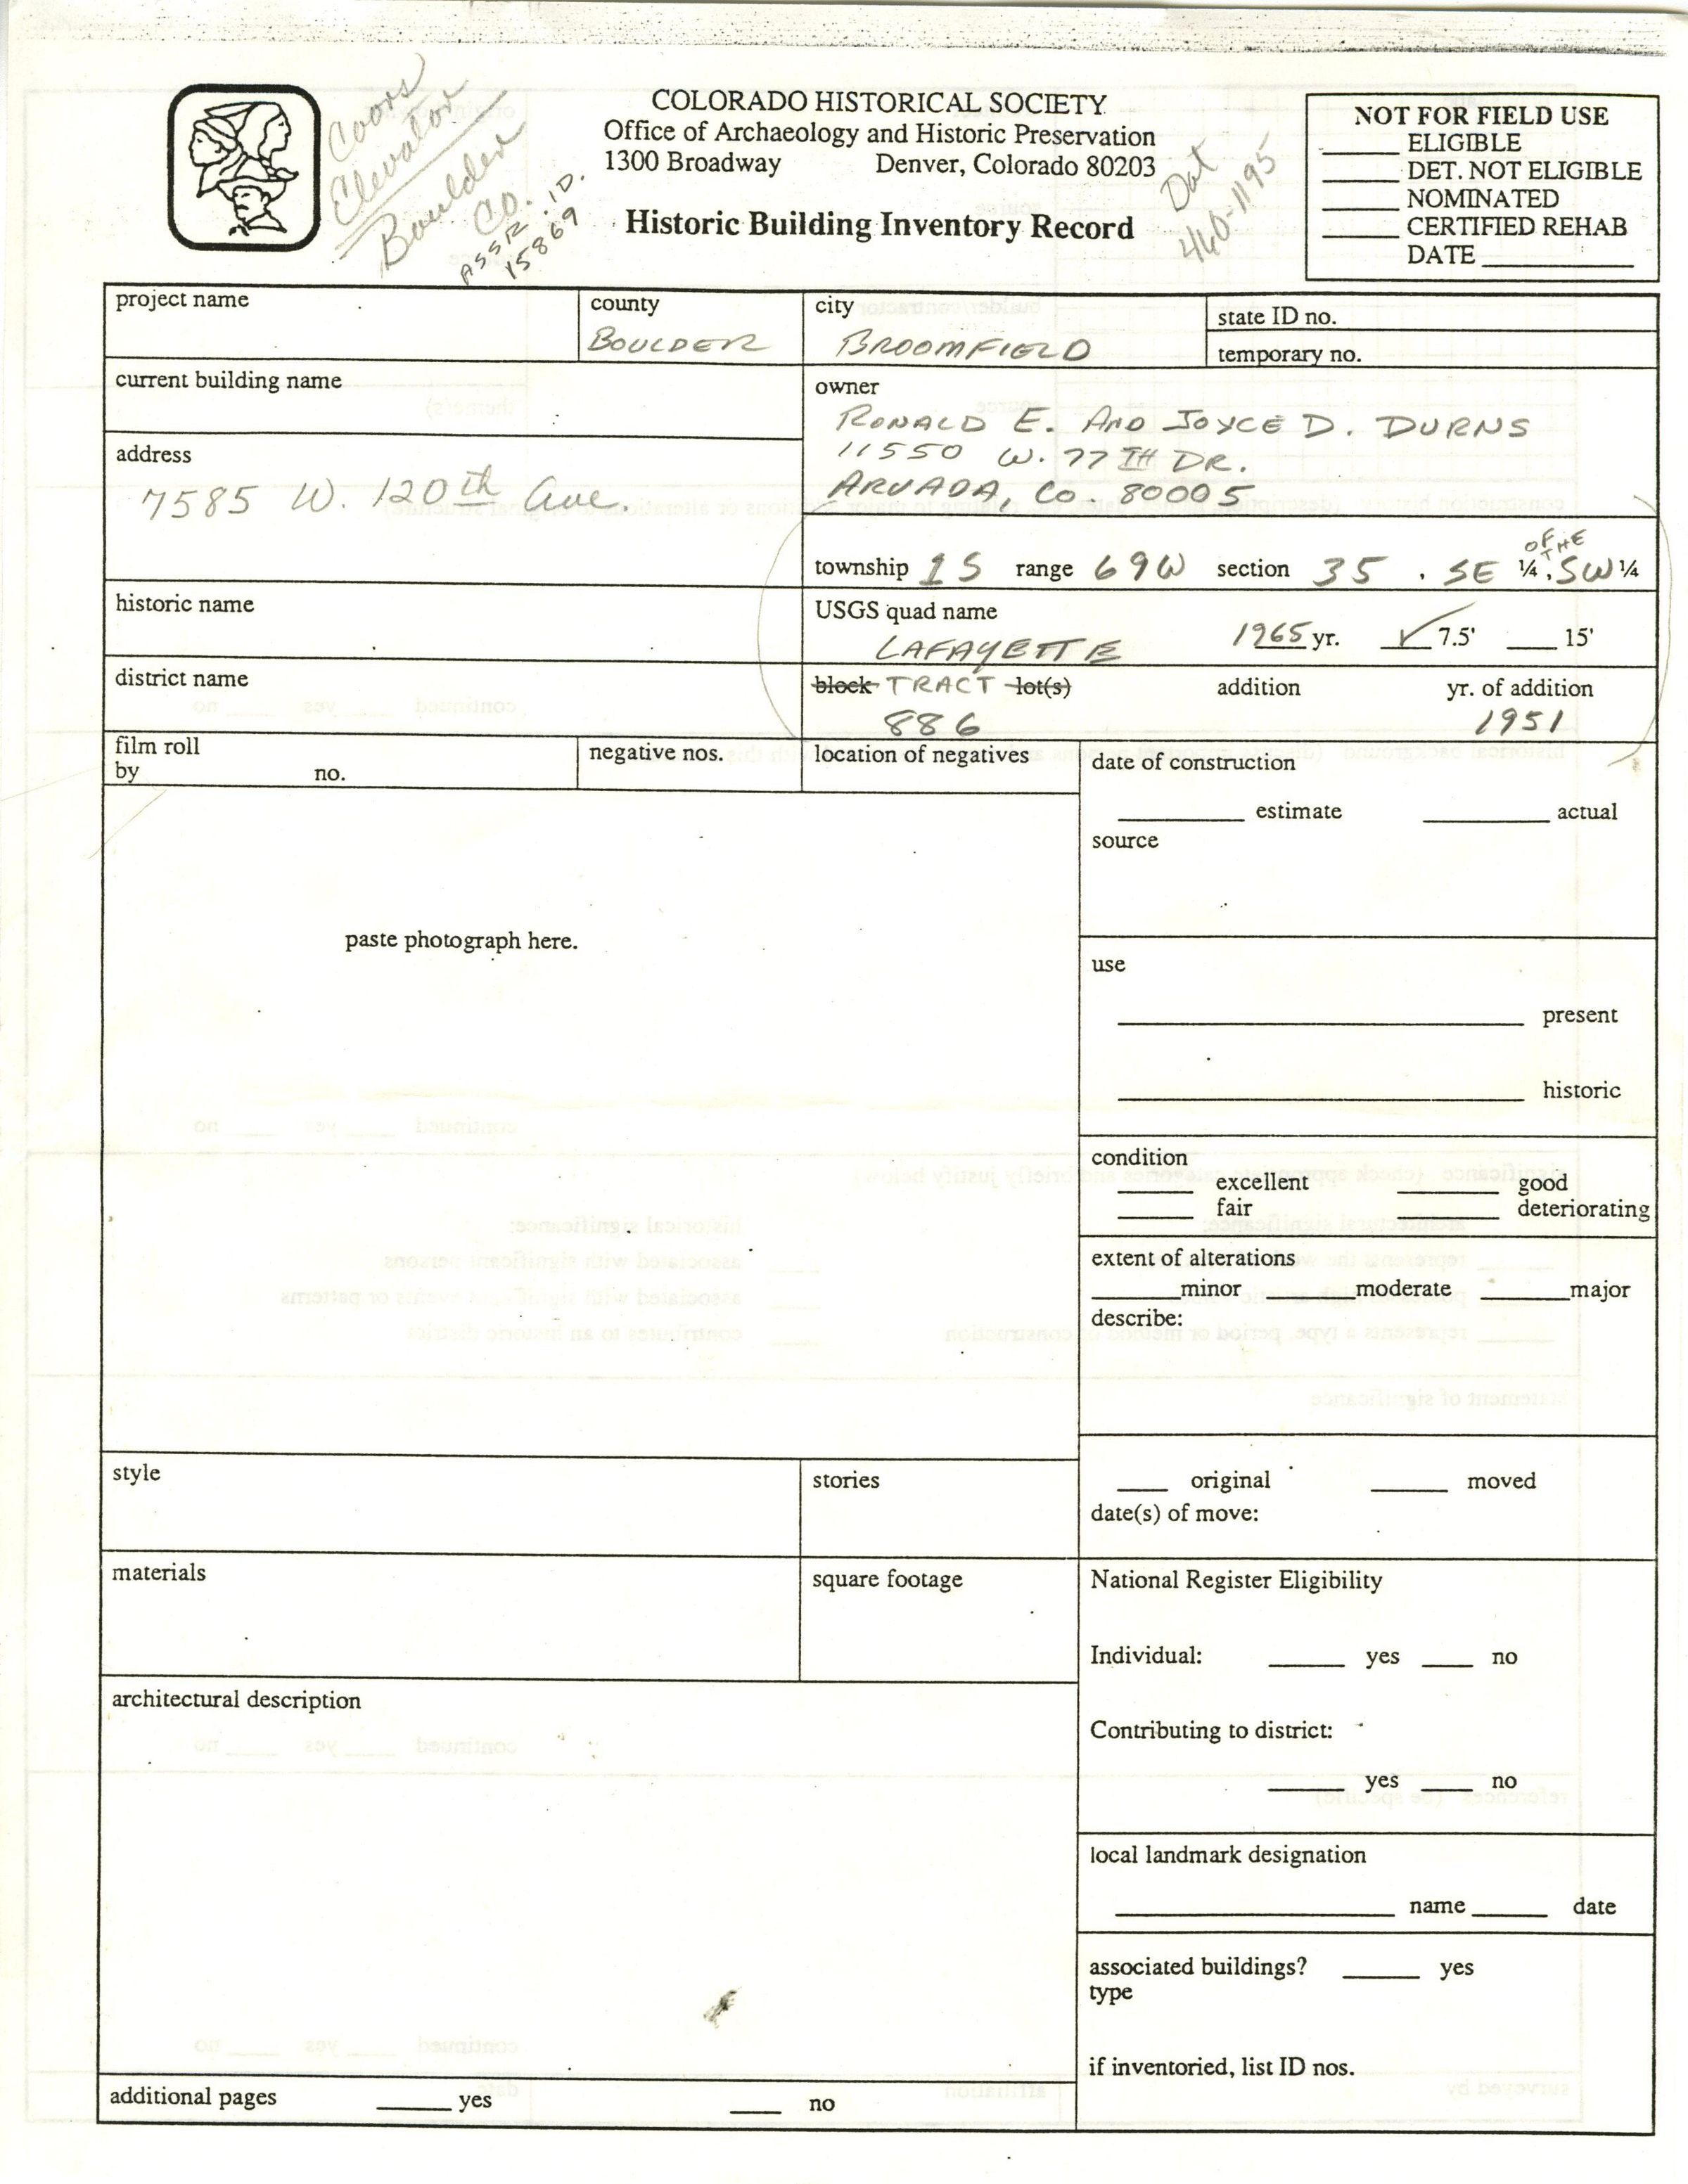 Coors
Elevator
Boulder
Co.
ASSR. ID.
15869
COLORADO HISTORICAL SOCIETY
Office of Archaeology and Historic Preservation
1300 Broadway Denver, Colorado 80203
Historic Building Inventory Record
460-1195
NOT FOR FIELD USE
____ ELIGIBLE
____ DET. NOT ELIGIBLE
____ NOMINATED
____ CERTIFIED REHAB
DATE ____
project name
county
BOULDER
city
BROOMFIELD
state ID no.
temporary no.
current building name
owner
RONALD E. AND JOYCE D. DURNS
11550 W. 77TH DR.
ARVADA, CO. 80005
address
7585 W. 120th Ave.
township 1S range 69W section 35 . SE ¼ OF THE . SW ¼
historic name
USGS quad name
LAFAYETTE 1965 yr. ✓ 7.5' ____ 15'
district name
block TRACT lot(s) addition yr. of addition
886 1951
film roll
by no.
negative nos.
location of negatives
date of construction
____ estimate ____ actual
source
paste photograph here.
use
____ present
____ historic
condition
____ excellent ____ good
____ fair ____ deteriorating
extent of alterations
____ minor ____ moderate ____ major
describe:
style
stories
____ original ____ moved
date(s) of move:
materials
square footage
National Register Eligibility
Individual: ____ yes ____ no
architectural description
Contributing to district:
____ yes ____ no
local landmark designation
____ name ____ date
associated buildings? ____ yes
type
if inventoried, list ID nos.
additional pages ____ yes ____ no